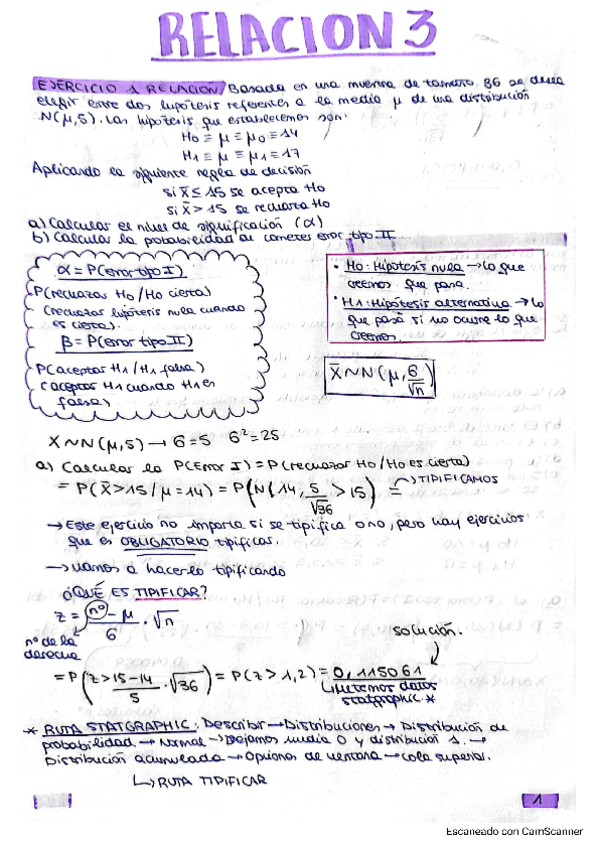 RELACION 3
EJERCICIO 1 RELACION/ Basada en una muestra de tamaño 36 se desea
elegir entre dos hipótesis referentes a la media μ de una distribución
N(μ,5). Las hipótesis que establecemos son:
H0 ≡ μ ≡ μ0 = 14
H1 ≡ μ ≡ μ1 = 17
Aplicando la siguiente regla de decisión
si x̄ ≤ 15 se acepta H0
si x̄ > 15 se rechaza H0
a) Calcular el nivel de significación (α)
b) Calcular la probabilidad de cometer error tipo II
α = P(error tipo I)
P(rechazar H0 / H0 cierta)
(rechazar hipótesis nula cuando
es cierta).
β = P(error tipo II)
P(aceptar H1 / H1 falsa)
(aceptar H1 cuando H1 es
falsa)
• H0: Hipótesis nula → Lo que
creemos que pasa.
• H1: Hipótesis alternativa → Lo
que pasa si no ocurre lo que
creemos.
X̄ ~ N(μ, σ/√n)
X ~ N(μ,5) → σ = 5 σ² = 25
a) Calcular la P(error I) = P(rechazar H0 / H0 es cierta)
= P(x̄ > 15 / μ = 14) = P(N(14, 5/√36) > 15) = → TIPIFICAMOS
→ Este ejercicio no importa si se tipifica o no, pero hay ejercicios
que es OBLIGATORIO tipificar.
→ vamos a hacerlo tipificando
¿QUÉ ES TIPIFICAR?
z = (nº) - μ / σ · √n
nº de la
derecha
solución.
= P(z > 15-14/5 · √36) = P(z > 1,2) = 0,115061
↳ Metemos datos
statgraphic. *
* RUTA STATGRAPHIC: Describir → Distribuciones → Distribución de
probabilidad → Normal → Dejamos media 0 y distribución 1. →
Distribución acumulada → Opciones de ventana → Cola superior.
↳ RUTA TIPIFICAR
1
Escaneado con CamScanner